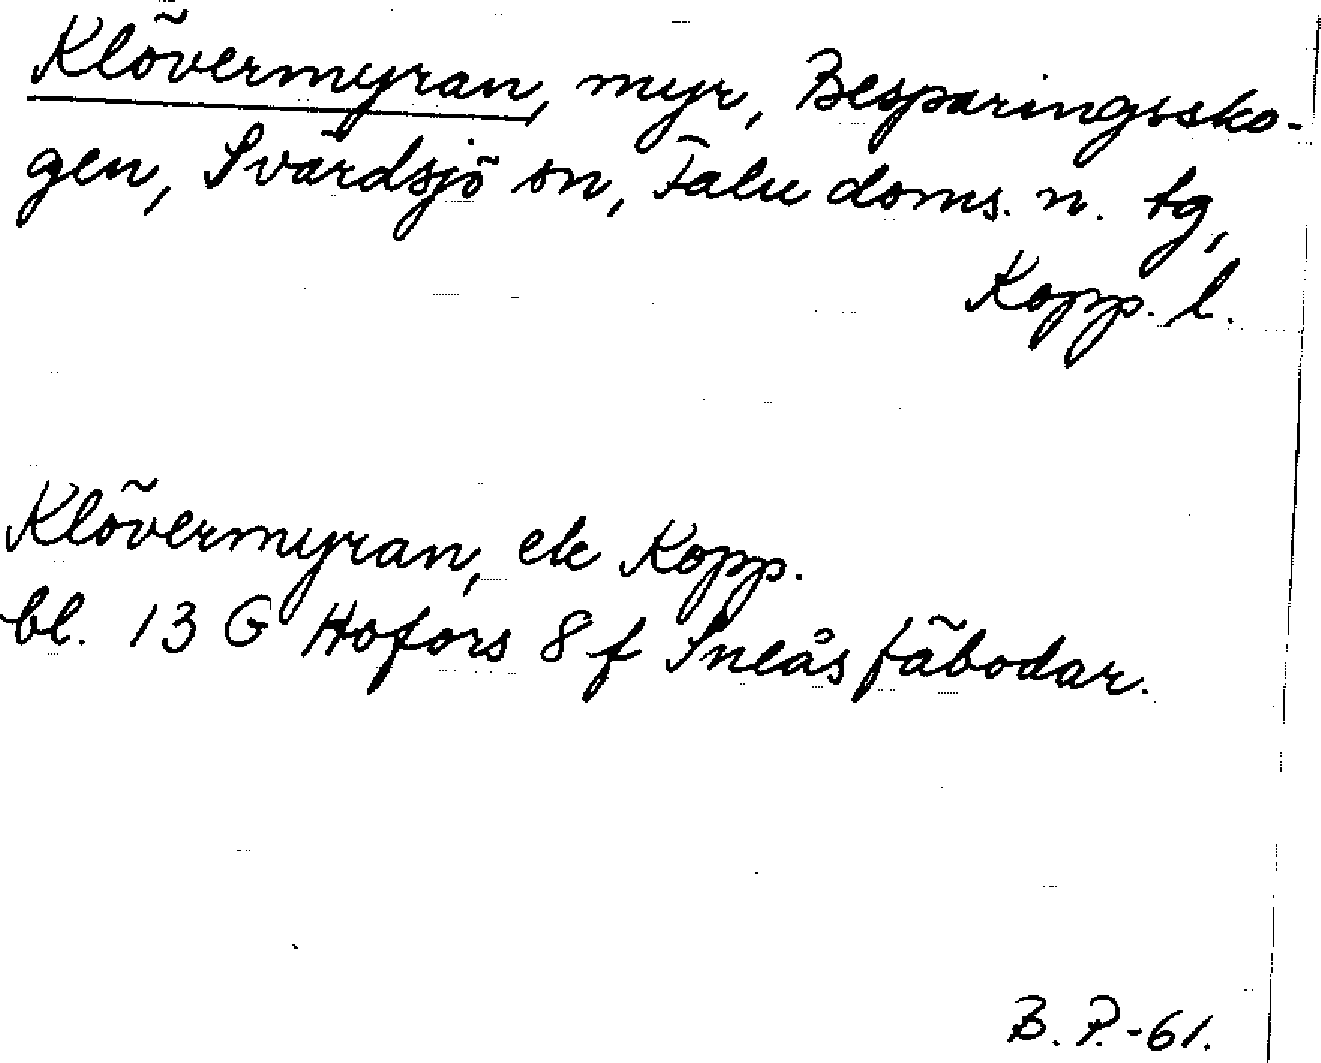 Klövermyran, myr, Besparingssko-
gen, Svärdsjö sn, Falu doms. n. tg,
Kopp. l.
Klövermyran, ek Kopp.
bl. 13 G Hofors 8 f Sneås fäbodar.
B. P. -61.